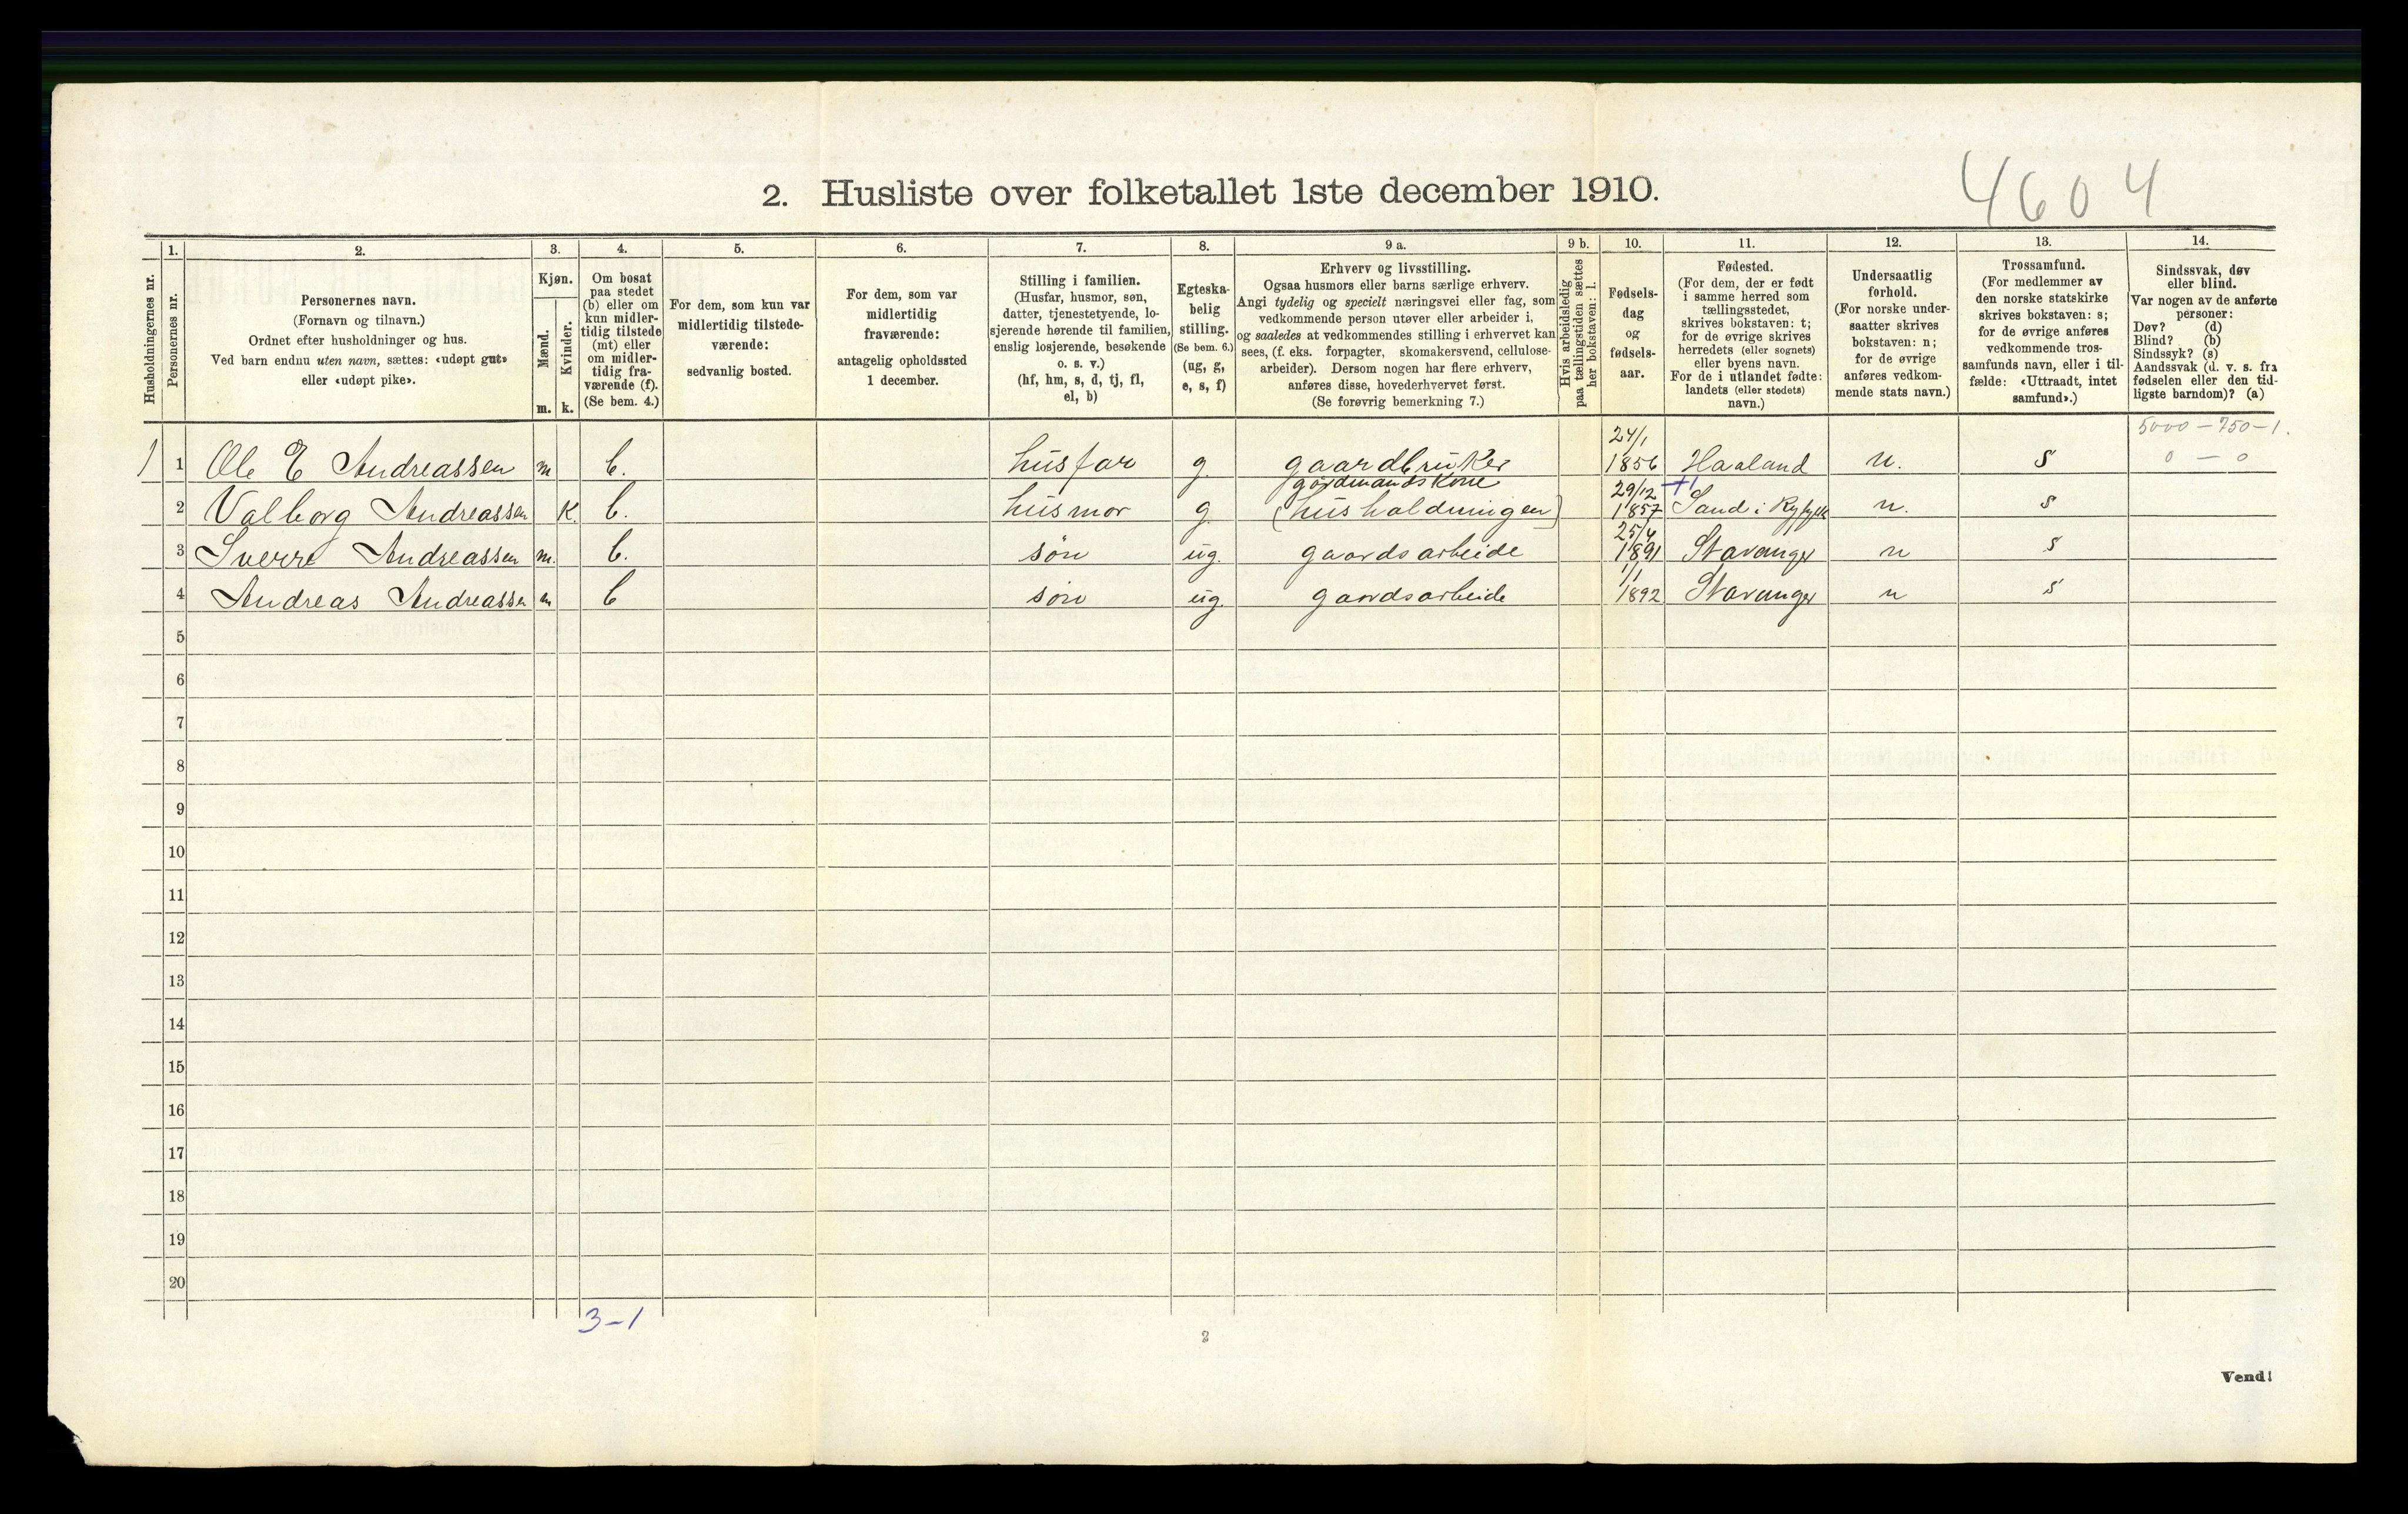 4604
2. Husliste over folketallet 1ste december 1910.
Husholdningernes nr.
1.
Personernes nr.
2.
Personernes navn.
(Fornavn og tilnavn.)
Ordnet efter husholdninger og hus.
Ved barn endnu uten navn, sættes: «udøpt gut»
eller «udøpt pike».
3.
Kjøn.
Mænd.
Kvinder.
m. k.
4.
Om bosat
paa stedet
(b) eller om
kun midler-
tidig tilstede
(mt) eller
om midler-
tidig fra-
værende (f).
(Se bem. 4.)
5.
For dem, som kun var
midlertidig tilstede-
værende:
sedvanlig bosted.
6.
For dem, som var
midlertidig
fraværende:
antagelig opholdssted
1 december.
7.
Stilling i familien.
(Husfar, husmor, søn,
datter, tjenestetyende, lo-
sjerende hørende til familien,
enslig losjerende, besøkende
o. s. v.)
(hf, hm, s, d, tj, fl,
el, b)
8.
Egteska-
belig
stilling.
(Se bem. 6.)
(ug, g,
e, s, f)
9 a.
Erhverv og livsstilling.
Ogsaa husmors eller barns særlige erhverv.
Angi tydelig og specielt næringsvei eller fag, som
vedkommende person utøver eller arbeider i,
og saaledes at vedkommendes stilling i erhvervet kan
sees, (f. eks. forpagter, skomakersvend, cellulose-
arbeider). Dersom nogen har flere erhverv,
anføres disse, hovederhvervet først.
(Se forøvrig bemerkning 7.)
9 b.
Hvis arbeidsledig
paa tællingstiden sættes
her bokstaven: l.
10.
Fødsels-
dag
og
fødsels-
aar.
11.
Fødested.
(For dem, der er født
i samme herred som
tællingsstedet,
skrives bokstaven: t;
for de øvrige skrives
herredets (eller sognets)
eller byens navn.
For de i utlandet fødte:
landets (eller stedets)
navn.)
12.
Undersaatlig
forhold.
(For norske under-
saatter skrives
bokstaven: n;
for de øvrige
anføres vedkom-
mende stats navn.)
13.
Trossamfund.
(For medlemmer av
den norske statskirke
skrives bokstaven: s;
for de øvrige anføres
vedkommende tros-
samfunds navn, eller i til-
fælde: «Uttraadt, intet
samfund».)
14.
Sindssvak, døv
eller blind.
Var nogen av de anførte
personer:
Døv? (d)
Blind? (b)
Sindssyk? (s)
Aandssvak (d. v. s. fra
fødselen eller den tid-
ligste barndom)? (a)
5000 - 750 - 1.
1 1 Ole E Andreassen m b. husfar g. gaardbruker 24/1 1856 Haaland n. s 0 - 0
gardmandskone
2 Valborg Andreassen K. b. husmor g. (husholdningen) 29/12 1857 Sand i Ryfylke n. s
3 Sverre Andreassen m. b. søn ug. gaardsarbeide 25/4 1891 Stavanger n s
4 Andreas Andreassen m b søn ug. gaardsarbeide 1/1 1892 Stavanger n s
5
6
7
8
9
10
11
12
13
14
15
16
17
18
19
20
3-1
2
Vend!